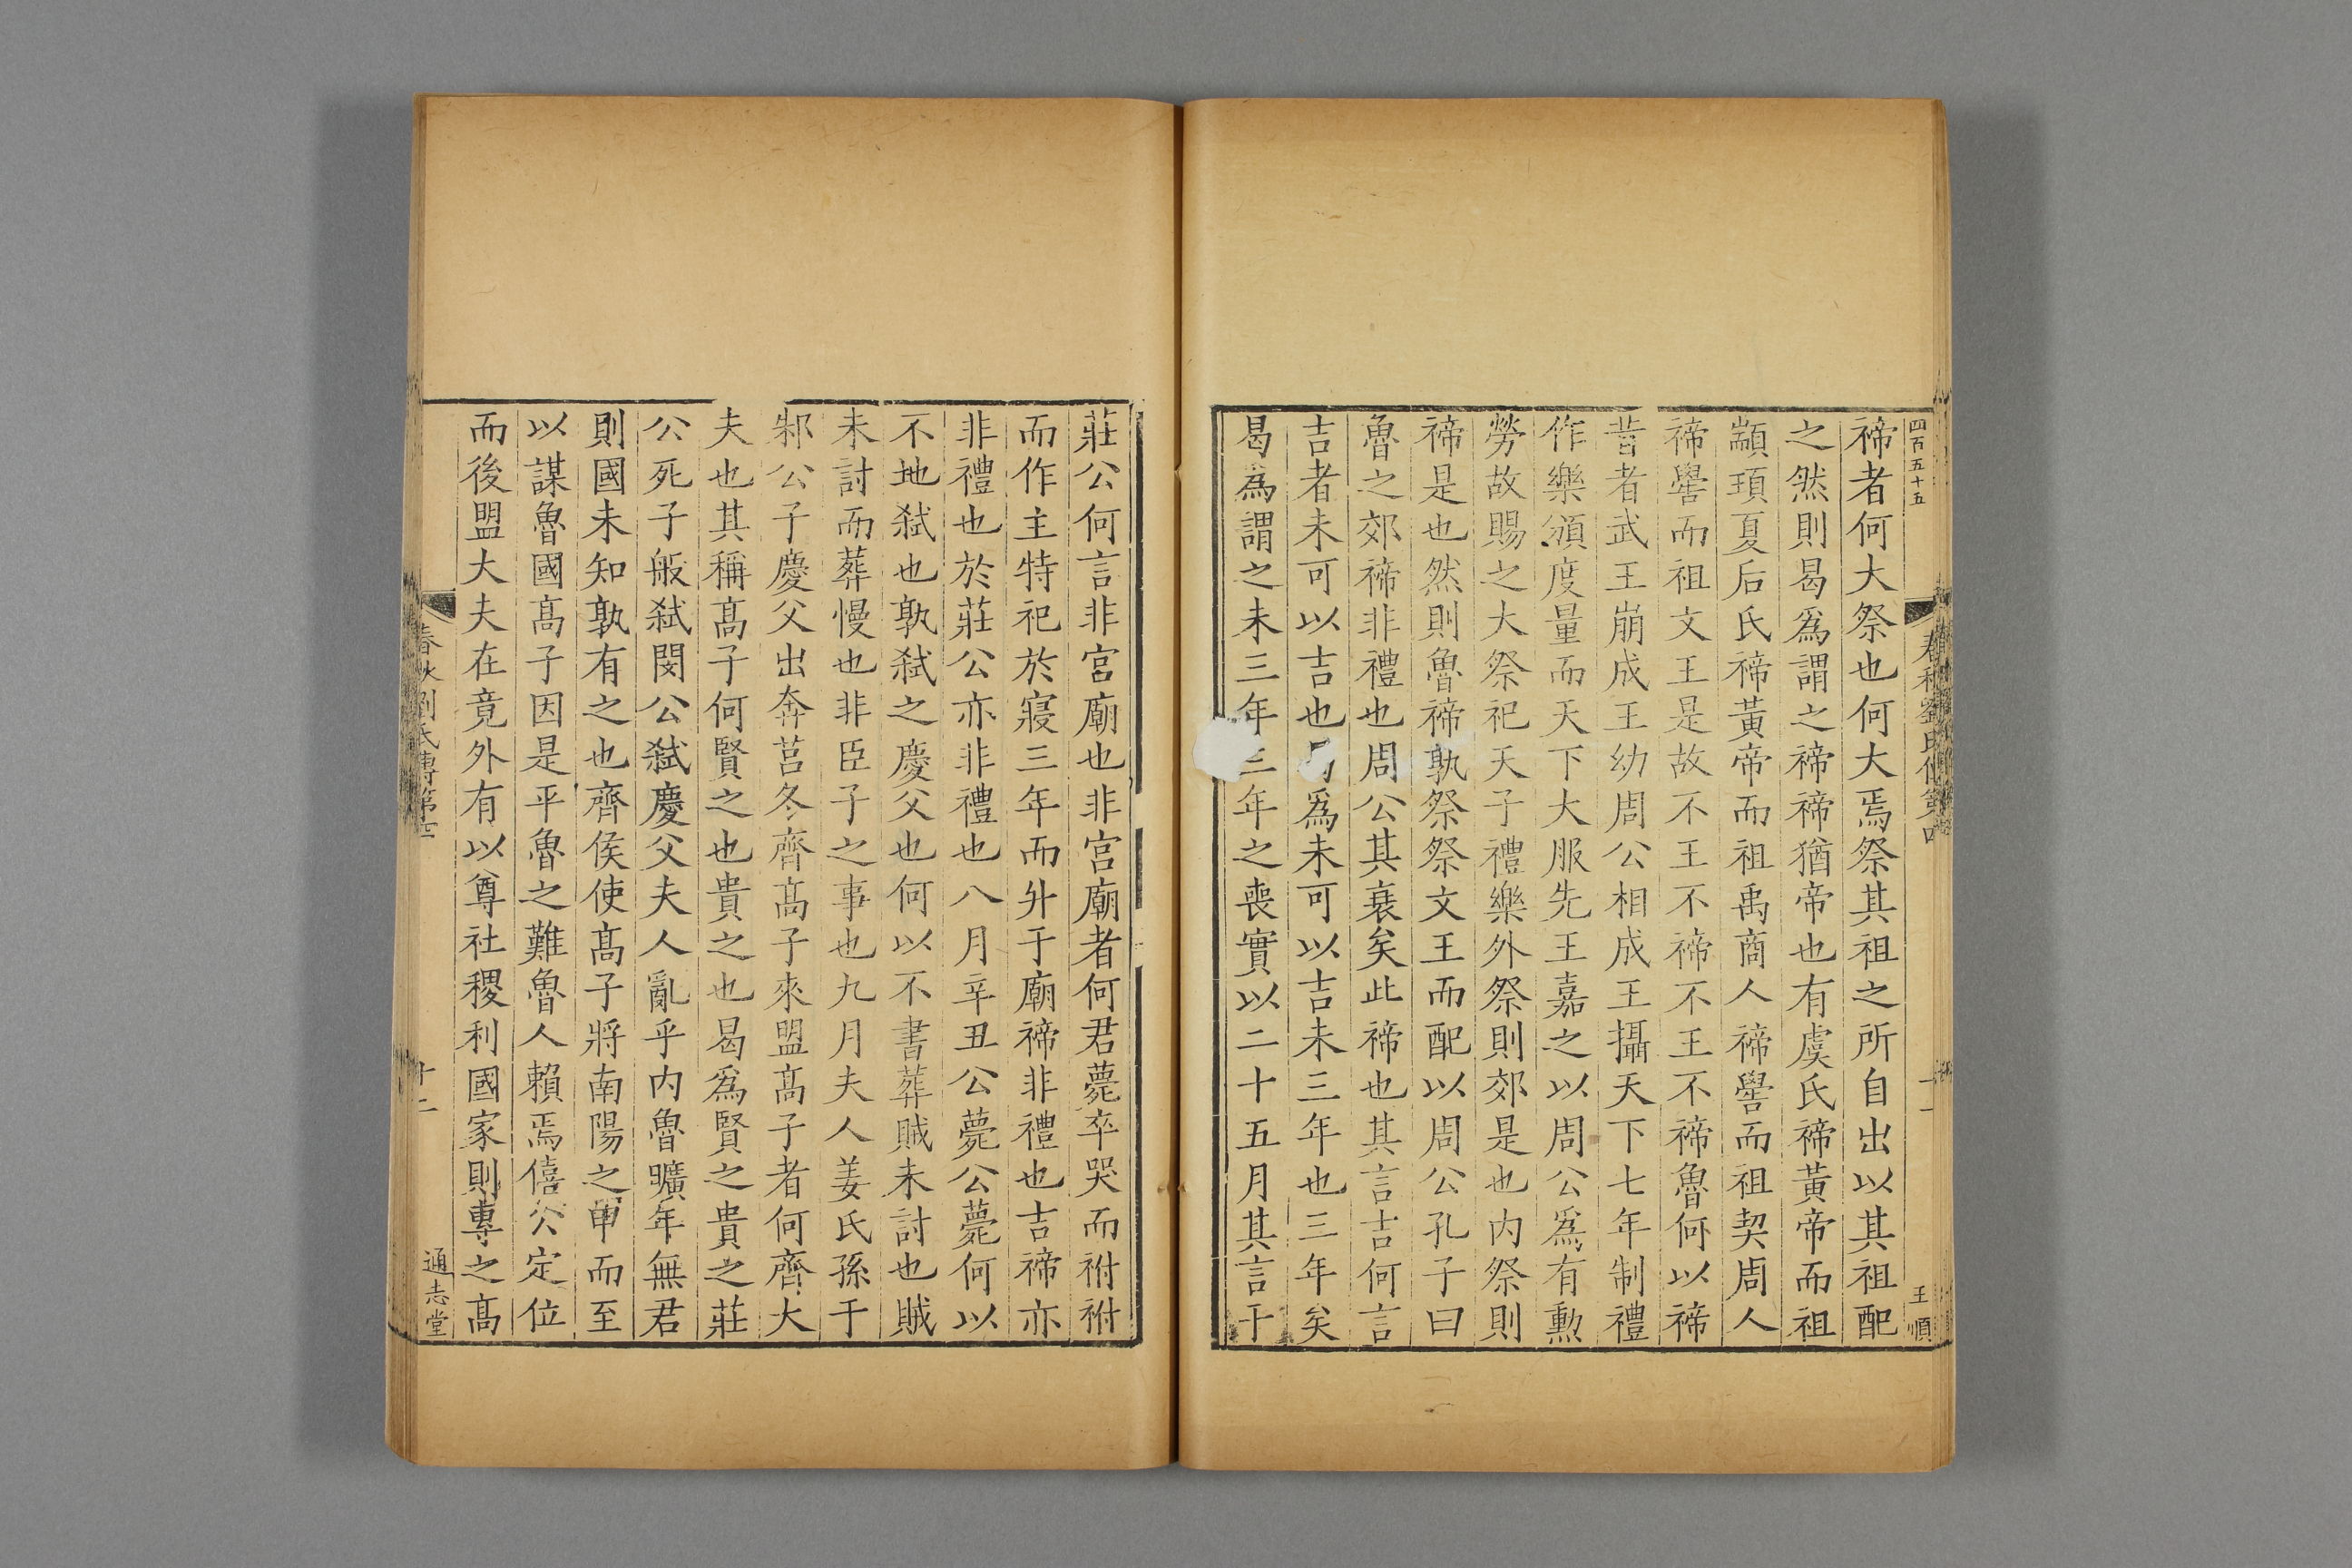 四百五十五
春秋劉氏傳第四
十一
王順
禘者何大祭也何大焉祭其祖之所自出以其祖配
之然則曷爲謂之禘禘猶帝也有虞氏禘黃帝而祖
顓頊夏后氏禘黃帝而祖禹商人禘嚳而祖契周人
禘嚳而祖文王是故不王不禘不王不禘魯何以禘
昔者武王崩成王幼周公相成王攝天下七年制禮
作樂頒度量而天下大服先王嘉之以周公爲有勳
勞故賜之大祭祀天子禮樂外祭則郊是也内祭則
禘是也然則魯禘孰祭祭文王而配以周公孔子曰
魯之郊禘非禮也周公其衰矣此禘也其言吉何言
吉者未可以吉也曷爲未可以吉未三年也三年矣
曷爲謂之未三年三年之喪實以二十五月其言于
莊公何言非宮廟也非宮廟者何君薨卒哭而祔祔
而作主特祀於寢三年而升于廟禘非禮也吉禘亦
非禮也於莊公亦非禮也八月辛丑公薨公薨何以
不地弒也孰弒之慶父也何以不書葬賊未討也賊
未討而葬慢也非臣子之事也九月夫人姜氏孫于
邾公子慶父出奔莒冬齊髙子來盟髙子者何齊大
夫也其稱髙子何賢之也貴之也曷爲賢之貴之莊
公死子般弒閔公弒慶父夫人亂乎内魯曠年無君
則國未知孰有之也齊侯使髙子將南陽之甲而至
以謀魯國髙子因是平魯之難魯人賴焉僖公定位
而後盟大夫在竟外有以尊社稷利國家則專之髙
春秋劉氏傳第四
十二
通志堂